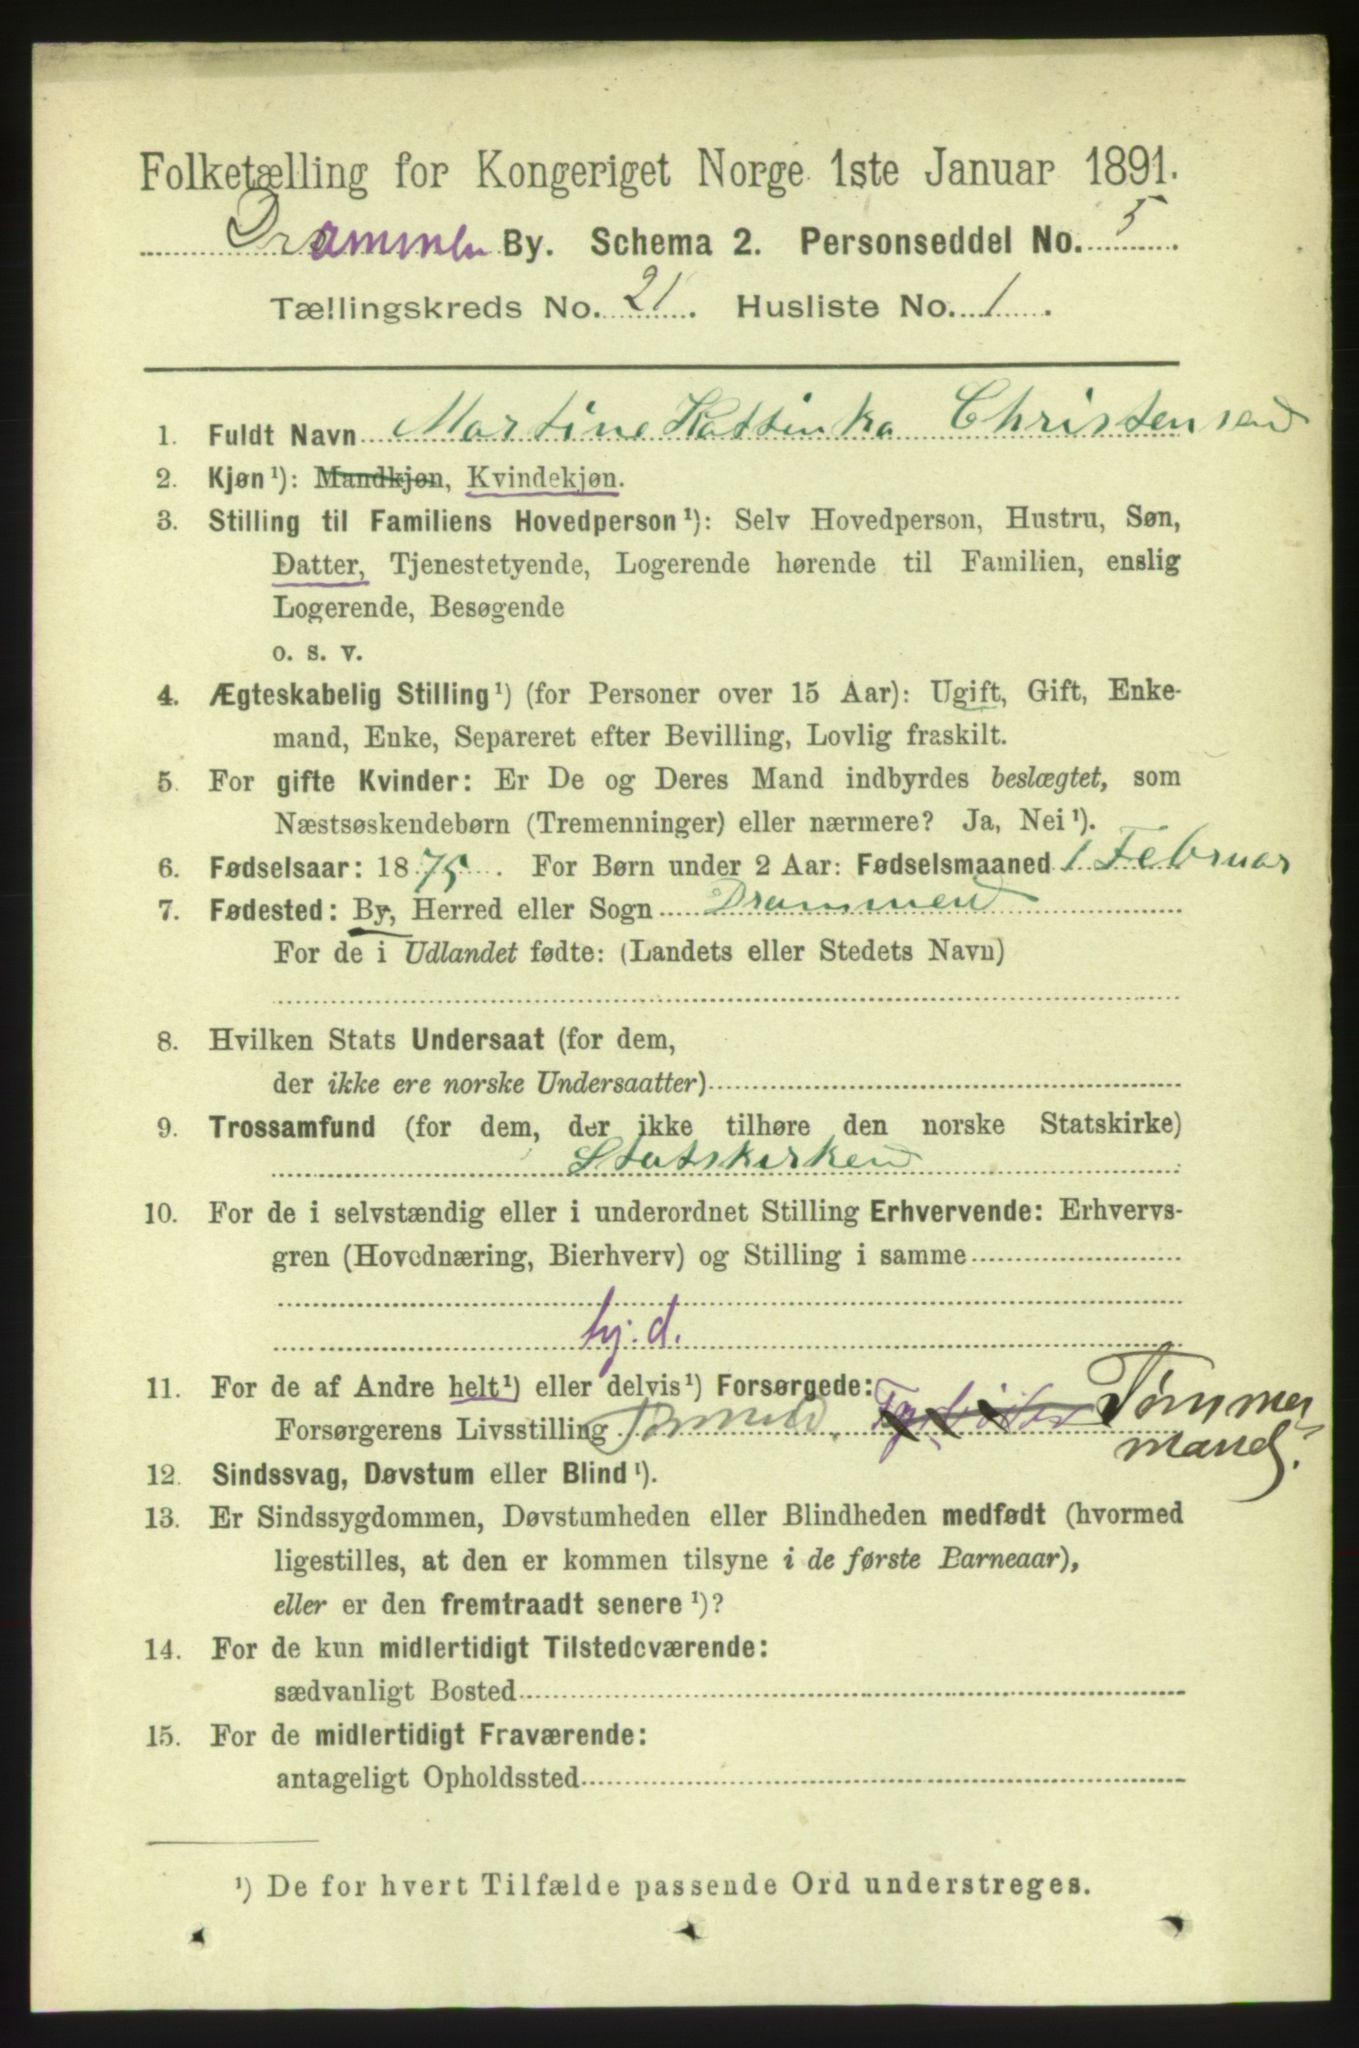 Folketælling for Kongeriget Norge 1ste Januar 1891.
Drammen By. Schema 2. Personseddel No. 5
Tællingskreds No. 21. Husliste No. 1.
1. Fuldt Navn Martine Kattinka Christensen
2. Kjøn ¹): Mandkjøn, Kvindekjøn.
3. Stilling til Familiens Hovedperson ¹): Selv Hovedperson, Hustru, Søn,
Datter, Tjenestetyende, Logerende hørende til Familien, enslig
Logerende, Besøgende
o. s. v.
4. Ægteskabelig Stilling ¹) (for Personer over 15 Aar): Ugift, Gift, Enke-
mand, Enke, Separeret efter Bevilling, Lovlig fraskilt.
5. For gifte Kvinder: Er De og Deres Mand indbyrdes beslægtet, som
Næstsøskendebørn (Tremenninger) eller nærmere? Ja, Nei ¹).
6. Fødselsaar: 1875. For Børn under 2 Aar: Fødselsmaaned 1 Februar
7. Fødested: By, Herred eller Sogn Drammen
For de i Udlandet fødte: (Landets eller Stedets Navn)
8. Hvilken Stats Undersaat (for dem,
der ikke ere norske Undersaatter)
9. Trossamfund (for dem, der ikke tilhøre den norske Statskirke)
Statskirken
10. For de i selvstændig eller i underordnet Stilling Erhvervende: Erhvervs-
gren (Hovednæring, Bierhverv) og Stilling i samme
hj. d.
11. For de af Andre helt ¹) eller delvis ¹) Forsørgede:
Forsørgerens Livsstilling Tømmer
mand.
12. Sindssvag, Døvstum eller Blind ¹).
13. Er Sindssygdommen, Døvstumheden eller Blindheden medfødt (hvormed
ligestilles, at den er kommen tilsyne i de første Barneaar),
eller er den fremtraadt senere ¹)?
14. For de kun midlertidigt Tilstedeværende:
sædvanligt Bosted
15. For de midlertidigt Fraværende:
antageligt Opholdssted
¹) De for hvert Tilfælde passende Ord understreges.